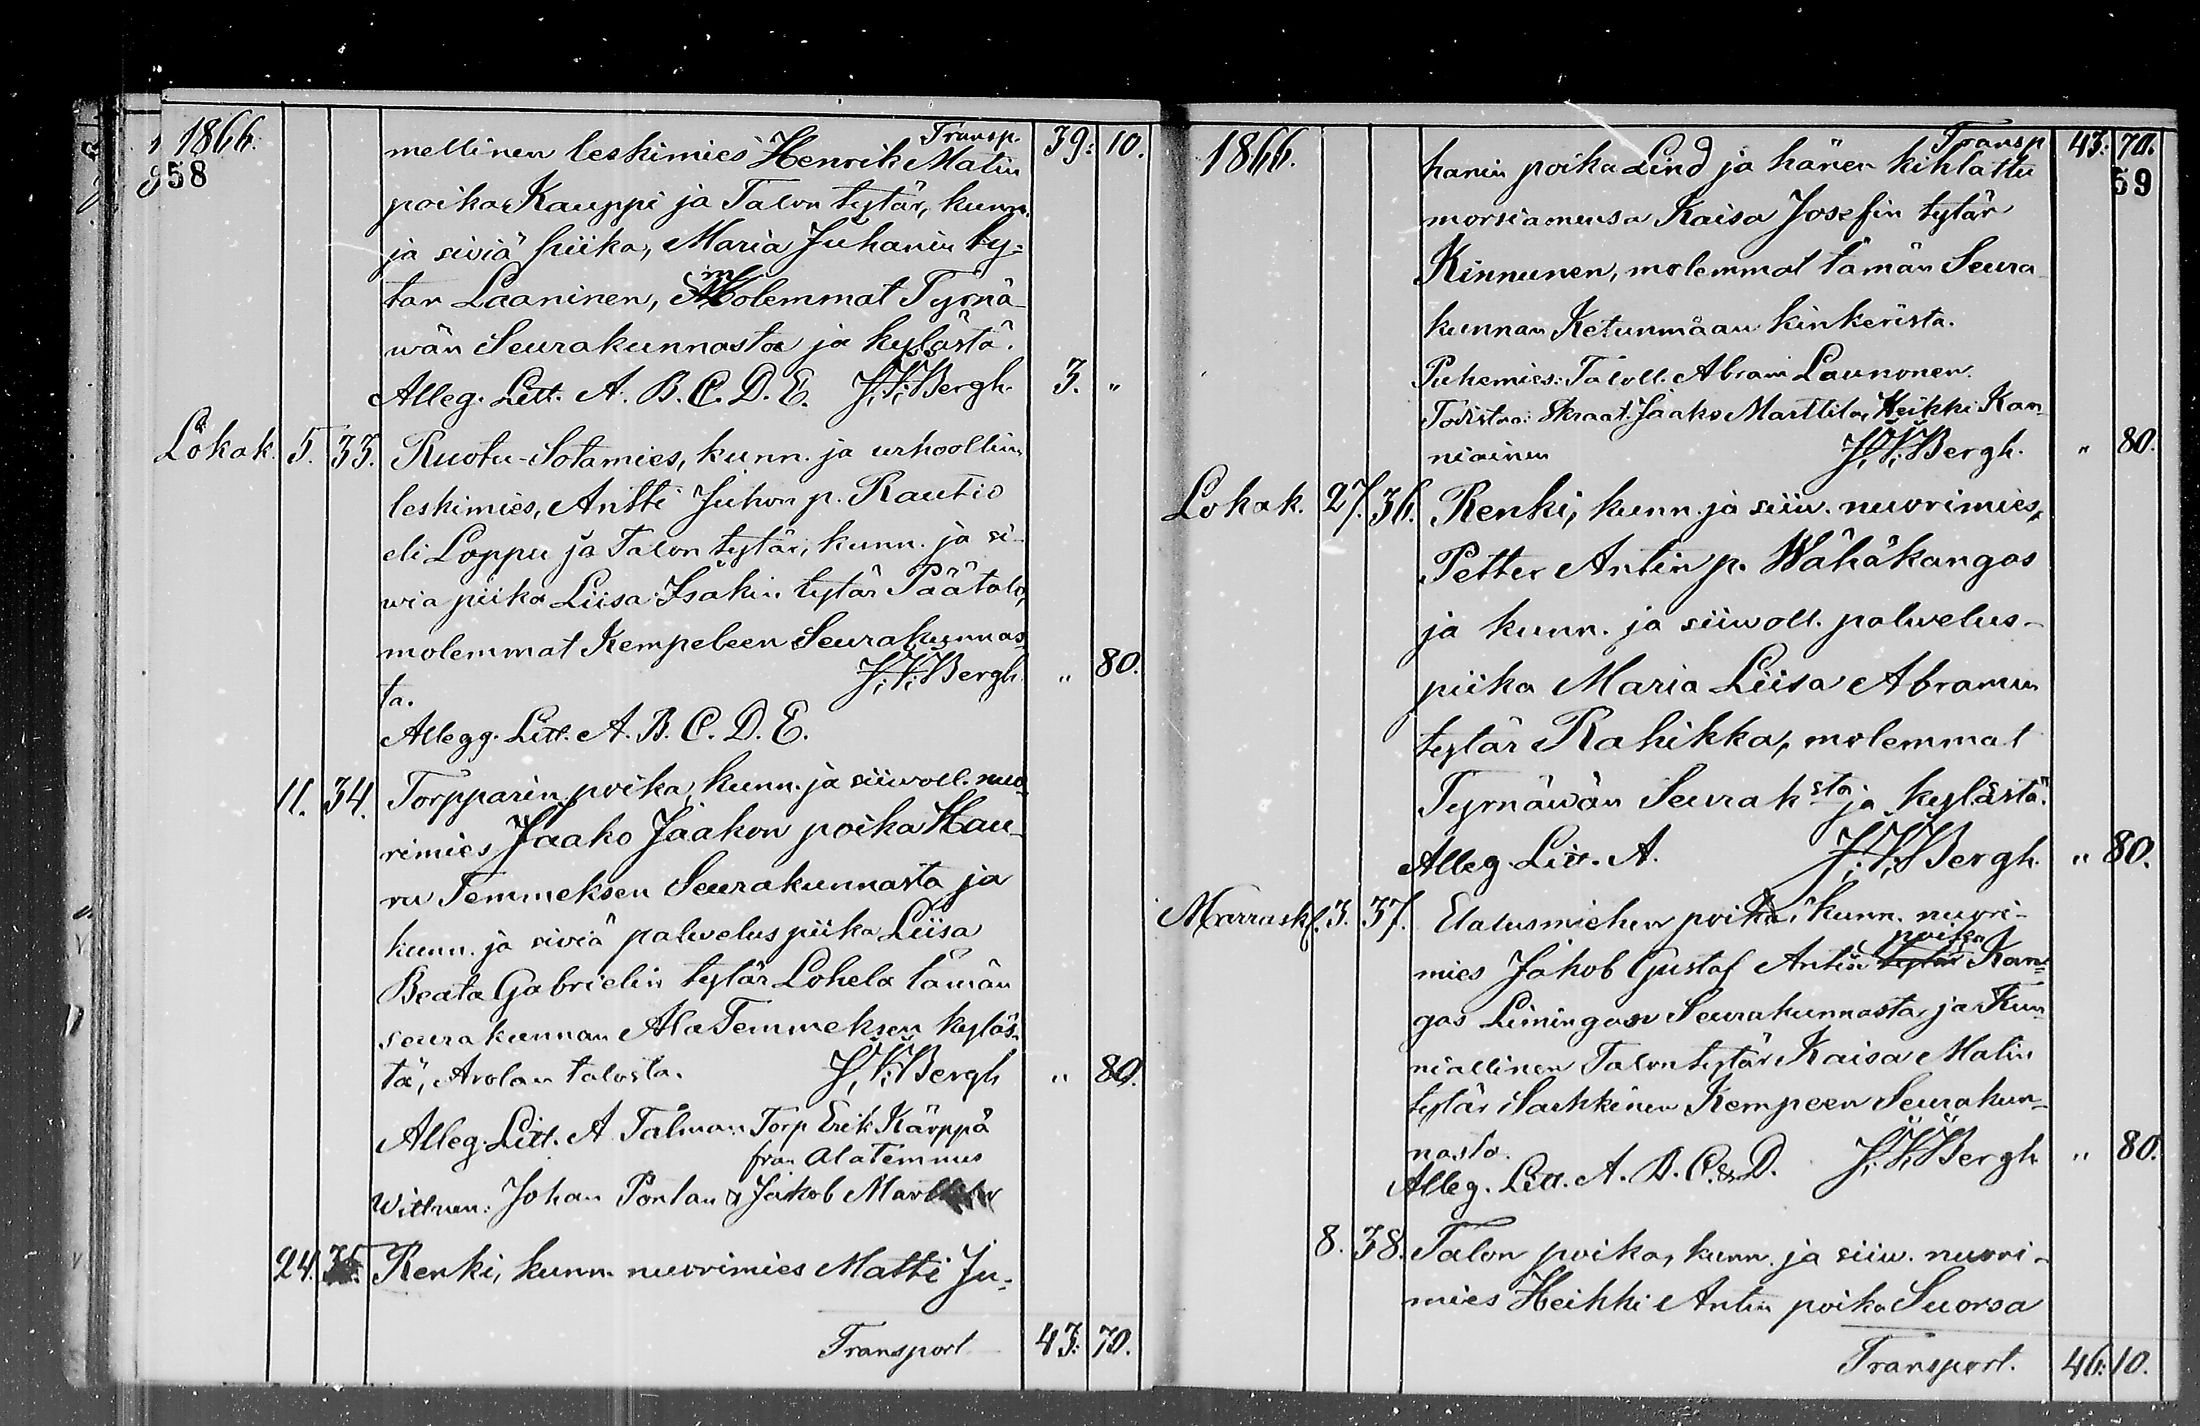 1866.
58
Transp. 39: 10.
mellinen leskimies Henrik Matin
poika Kauppi ja Talon tytär, kunn.
ja siviä piika, Maria Juhanin ty-
tär Laaninen, molemmat Tyrnä-
wän Seurakunnasta ja kylästä.
Alleg. Litt. A. B. C. D. E. J. V. Bergh. 3. "
Lokak. 5. 33. Ruotu-Sotamies, kunn. ja urhoollin.
leskimies, Antti Juhon p. Rautio
eli Loppu ja Talon tytär, kunn. ja si-
wiä piika Liisa Isakin tytär Päätalo,
molemmat Kempeleen Seurakunnas-
ta. J. V. Bergh. " 80.
Allegg. Litt. A. B. C. D. E.
11. 34. Torpparin poika, kunn. ja siiwoll. nuo-
rimies Jaako Jaakon poika Hau-
ru Temmeksen Seurakunnasta ja
kunn. ja siviä palvelus piika Liisa
Beata Gabrielin tytär Lohela tämän
seurakunnan Ala Temmeksen kyläs-
tä, Arolan talosta. J. V. Bergh " 80.
Alleg. Litt. A Talman Torp Erik Kärppä
från Alatemmes
Wittnen: Johan Pontan & Jakob
24. 35. Renki, kunn. nuorimies Matti Ju-
Transport 43: 70.
1866.
Transp 43: 70.
59
hanin poika Lind ja hänen kihlattu
morsiamensa Kaisa Josefin tytär
Kinnunen, molemmat tämän Seura-
kunnan Ketunmaan kinkeristä.
Puhemies: Taloll. Abram Launonen.
Todistaa: Skraat. Jaako Marttila, Heikki Kan-
niainen J. V. Bergh. " 80.
Lokak. 27. 36. Renki, kunn. ja siiw. nuorimies,
Petter Antin p. Wähäkangas
ja kunn. ja siiwoll. palwelus-
piika Maria Liisa Abramin
tytär Rahikka, molemmat
Tyrnäwän Seurak sta ja kylästä.
Alleg. Litt. A. J. V. Bergh. " 80.
Marrask. 3. 37. Elatusmiehen poika, kunn. nuori-
mies Jakob Gustaf Antin tytär poika Kan-
gas Limingan Seurakunnasta ja Kun-
niallinen Talon tytär Kaisa Matin
tytär Sarkkinen Kempeen Seurakun-
nasta.
Alleg. Litt. A. B. C. & D. J. V. Bergh " 80.
8. 38. Talon poika, kunn. ja siiw. nuori-
mies Heikki Antin poika Suorsa
Transport. 46: 10.